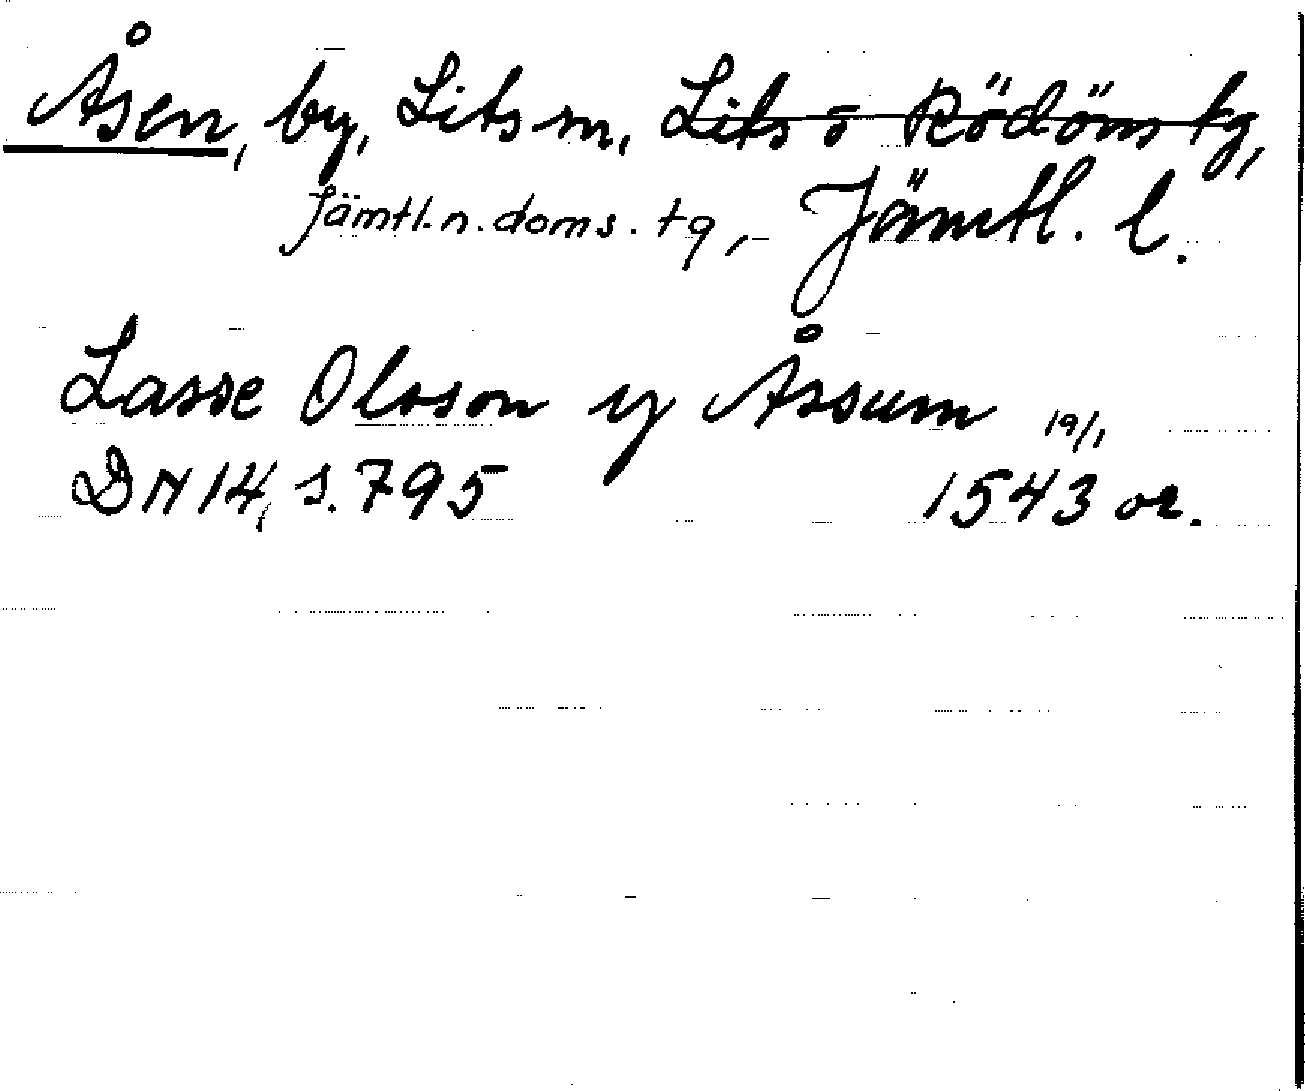 Åsen, by, Lits sn, Lits o Rödöns tg,
Jämtl. n. doms. tg, Jämtl. l.
Lasse Olsson y Åssum 19/1
DN 14, s. 795 1543 or.